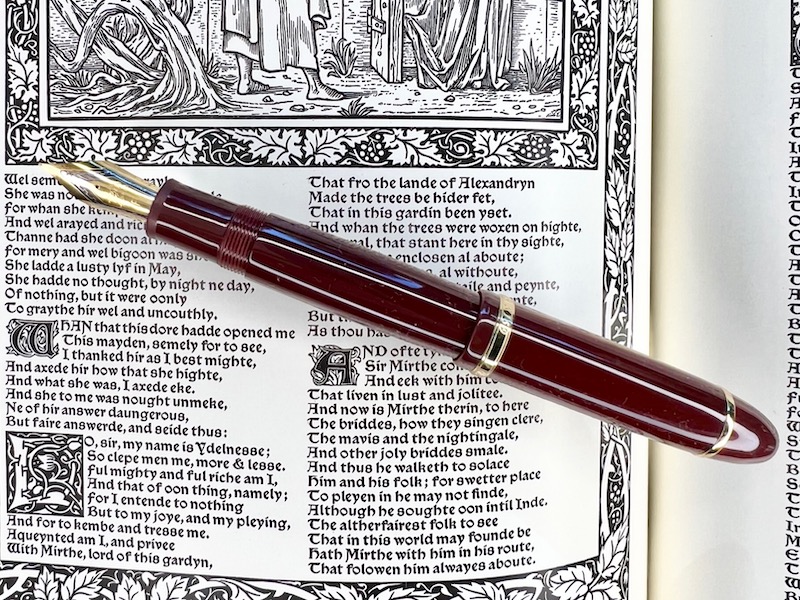 Wel
She was
For whan she
And wel arayed and
Thanne had she doon al
For mery and wel bigoon was
She ladde a lusty lyf in May,
She hadde no thought, by night ne day,
Of nothing, but it were oonly
To graythe hir wel and uncouthly.
WHAN that this dore hadde opened me
This mayden, semely for to see,
I thanked hir as I best mighte,
And axede hir how that she highte,
And what she was, I axede eke.
And she to me was nought unmeke,
Ne of hir answer daungerous,
But faire answerde, and seide thus:
LO, sir, my name is Ydelnesse;
So clepe men me, more & lesse.
Ful mighty and ful riche am I,
And that of oon thing, namely;
For I entende to nothing
But to my joye, and my pleying,
And for to kembe and tresse me.
Aqueynted am I, and privee
With Mirthe, lord of this gardyn,
That fro the lande of Alexandryn
Made the trees be hider fet,
That in this gardin been yset.
And whan the trees were woxen on highte,
that stant here in thy sighte,
enclosen al aboute;
al withoute,
and peynte,
As thou
AND ofte
Sir Mirthe
And eek with him
That liven in lust and jolitee.
And now is Mirthe therin, to here
The briddes, how they singen clere,
The mavis and the nightingale,
And other joly briddes smale.
And thus he walketh to solace
Him and his folk; for swetter place
To pleyen in he may not finde,
Although he soughte oon intil Inde.
The altherfairest folk to see
That in this world may founde be
Hath Mirthe with him in his route,
That folowen him alwayes aboute.